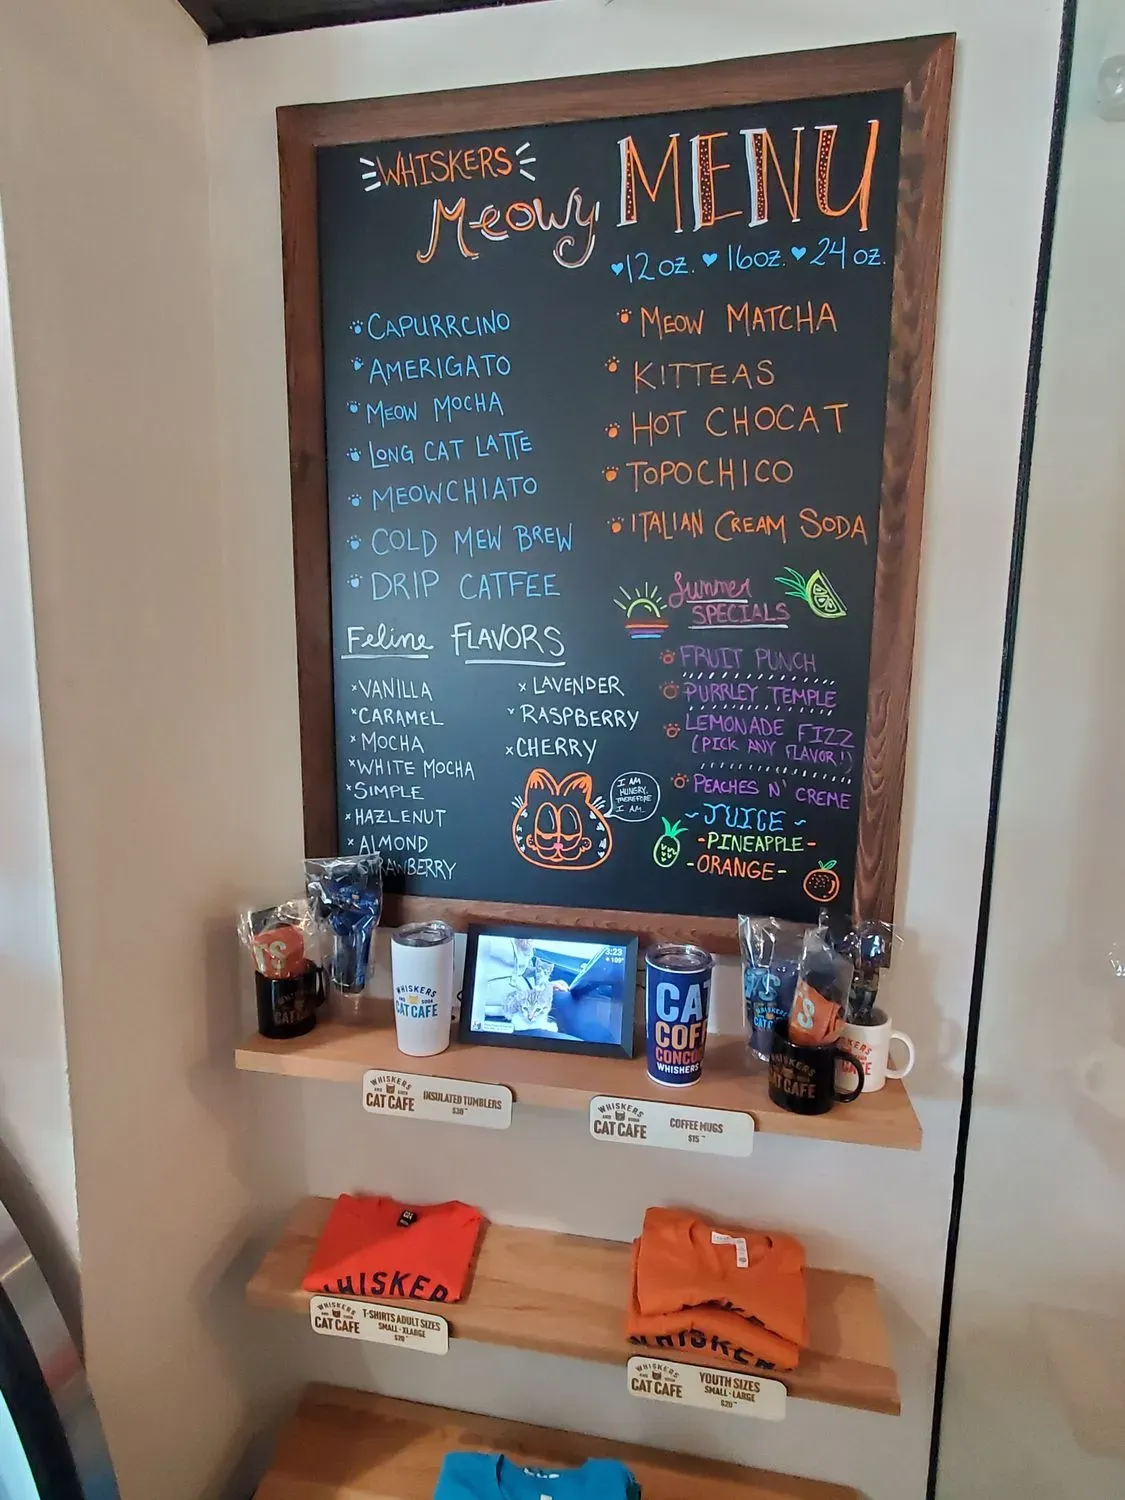 WHISKERS
Meowy MENU
12 oz. 16 oz. 24 oz.
CAPURRCINO
AMERIGATO
MEOW MOCHA
LONG CAT LATTE
MEOWCHIATO
COLD MEW BREW
DRIP CATFEE
MEOW MATCHA
KITTEAS
HOT CHOCAT
TOPOCHICO
ITALIAN CREAM SODA
Feline FLAVORS
VANILLA
CARAMEL
MOCHA
WHITE MOCHA
SIMPLE
HAZLENUT
ALMOND
RAWBERRY
LAVENDER
RASPBERRY
CHERRY
I AM
HUNGRY.
THEREFORE
I AM.
Summer
SPECIALS
FRUIT PUNCH
PURRLEY TEMPLE
LEMONADE FIZZ
(PICK ANY FLAVOR!)
PEACHES N' CREME
~JUICE~
-PINEAPPLE-
-ORANGE-
WHISKERS
AND SODA
CAT CAFE
3:23
109°
CAT
COFF
CONCO
WHISKERS
CAT CAFE
CAFE
WHISKERS
AND SODA
CAT CAFE
INSULATED TUMBLERS
$30
WHISKERS
AND SODA
CAT CAFE
COFFEE MUGS
$15
WHISKER
WHISKERS
AND SODA
CAT CAFE
T-SHIRTS ADULT SIZES
SMALL-XLARGE
WHISKER
WHISKERS
AND SODA
CAT CAFE
YOUTH SIZES
SMALL-LARGE
$20